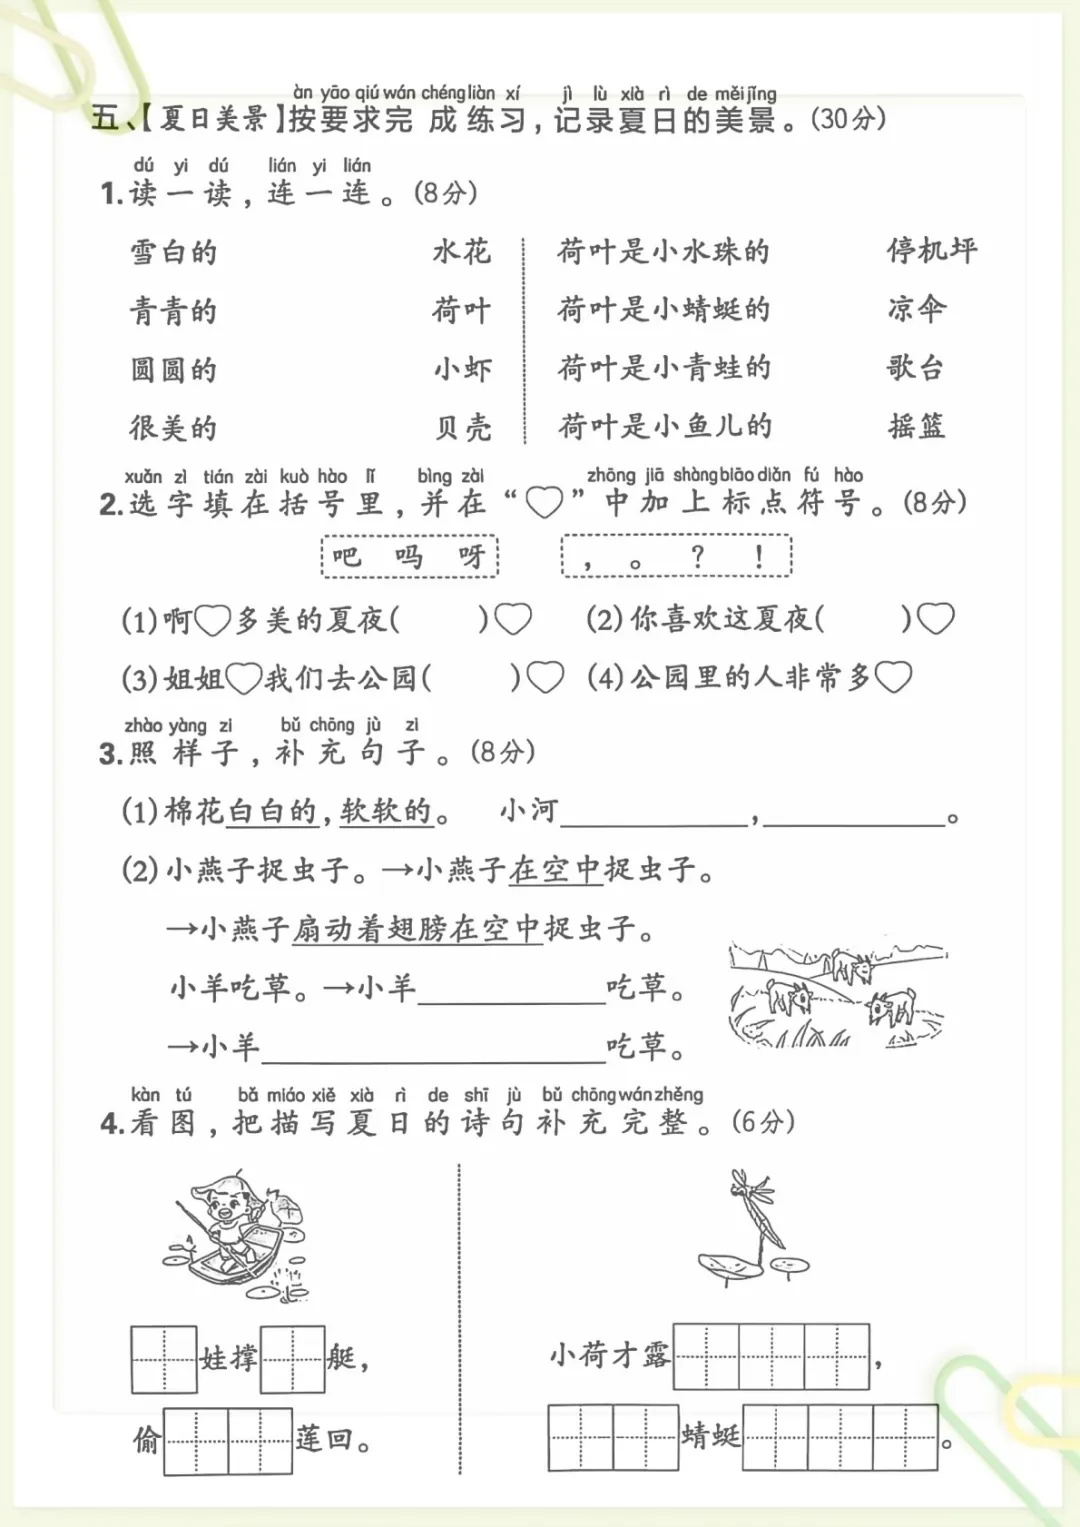 àn yāo qiú wán chéng liàn xí jì lù xià rì de měi jǐng
五、【夏日美景】按要求完成练习，记录夏日的美景。(30分)
dú yi dú lián yi lián
1.读一读，连一连。(8分)
雪白的 水花 荷叶是小水珠的 停机坪
青青的 荷叶 荷叶是小蜻蜓的 凉伞
圆圆的 小虾 荷叶是小青蛙的 歌台
很美的 贝壳 荷叶是小鱼儿的 摇篮
xuǎn zì tián zài kuò hào lǐ bìng zài zhōng jiā shàng biāo diǎn fú hào
2.选字填在括号里，并在“♡”中加上标点符号。(8分)
吧 吗 呀 ， 。 ？ ！
(1)啊♡多美的夏夜( )♡ (2)你喜欢这夏夜( )♡
(3)姐姐♡我们去公园( )♡ (4)公园里的人非常多♡
zhào yàng zi bǔ chōng jù zi
3.照样子，补充句子。(8分)
(1)棉花白白的，软软的。 小河____________，____________。
(2)小燕子捉虫子。→小燕子在空中捉虫子。
→小燕子扇动着翅膀在空中捉虫子。
小羊吃草。→小羊____________吃草。
→小羊______________________吃草。
kàn tú bǎ miáo xiě xià rì de shī jù bǔ chōng wán zhěng
4.看图，把描写夏日的诗句补充完整。(6分)
娃撑 艇， 小荷才露 ，
偷 莲回。 蜻蜓 。